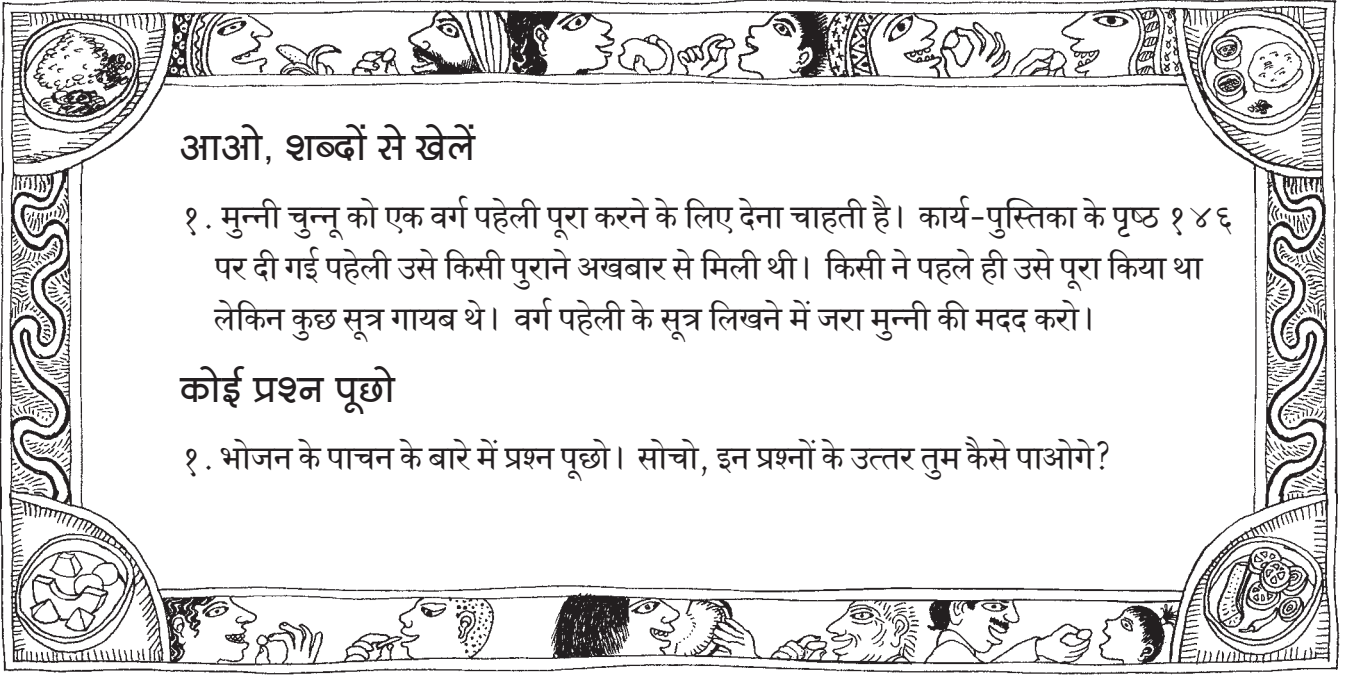 आओ, शब्दों से खेलें
१. मुन्नी चुन्नू को एक वर्ग पहेली पूरा करने के लिए देना चाहती है। कार्य-पुस्तिका के पृष्ठ १४६
पर दी गई पहेली उसे किसी पुराने अखबार से मिली थी। किसी ने पहले ही उसे पूरा किया था
लेकिन कुछ सूत्र गायब थे। वर्ग पहेली के सूत्र लिखने में जरा मुन्नी की मदद करो।
कोई प्रश्न पूछो
१. भोजन के पाचन के बारे में प्रश्न पूछो। सोचो, इन प्रश्नों के उत्तर तुम कैसे पाओगे?